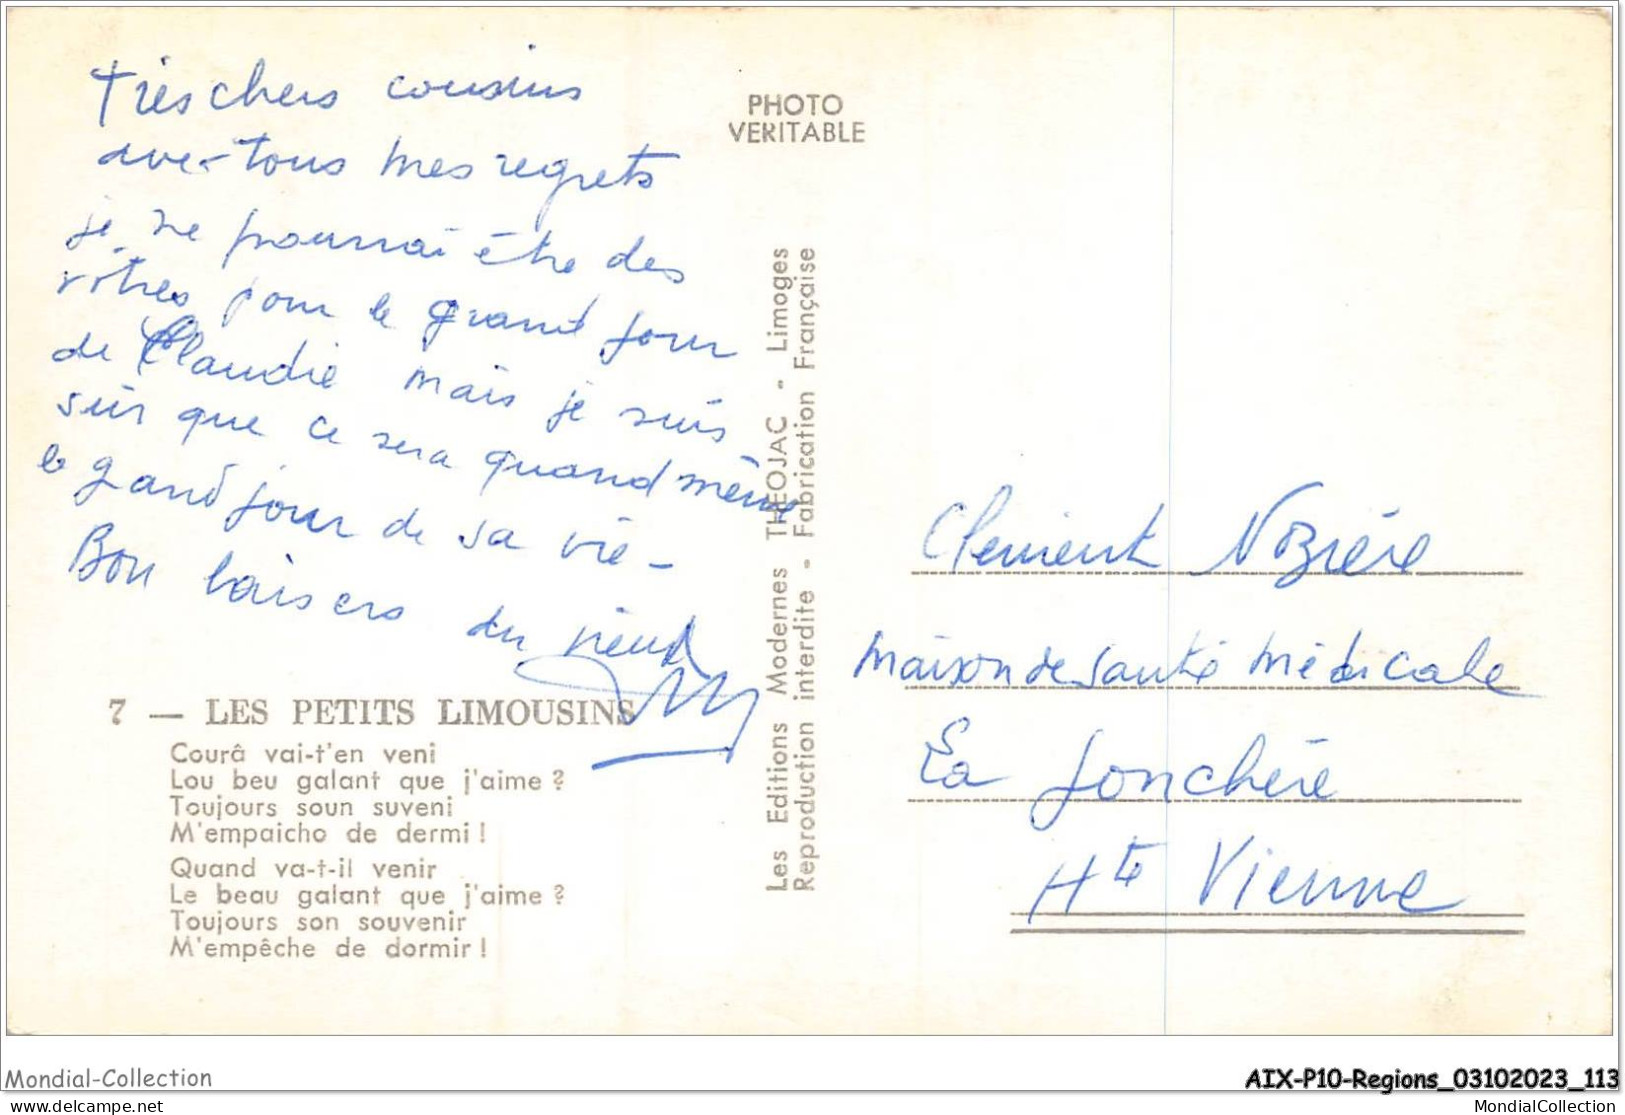 Très chers cousins
avec tous mes regrets
je ne pourrai être des
vôtres pour le grand jour
de Claudie mais je suis
sûr que ce sera quand même
le grand jour de sa vie -
Bon baisers du vieux
7 — LES PETITS LIMOUSINS
Courâ vai-t'en veni
Lou beu galant que j'aime ?
Toujours soun suveni
M'empaicho de dermi !
Quand va-t-il venir
Le beau galant que j'aime ?
Toujours son souvenir
M'empêche de dormir !
PHOTO
VERITABLE
Les Editions Modernes THEOJAC - Limoges
Reproduction interdite - Fabrication Française
Clement Nozière
Maison de Santé Médicale
La Jonchère
Hte Vienne
Mondial-Collection
AIX-P10-Regions_03102023_113
www.delcampe.net
MondialCollection